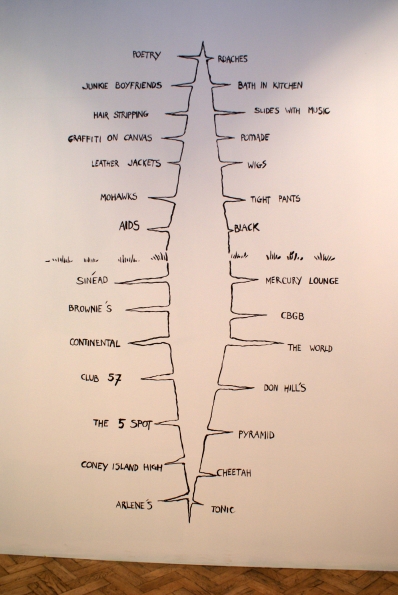 POETRY
ROACHES
JUNKIE BOYFRIENDS
BATH IN KITCHEN
HAIR STRIPPING
SLIDES WITH MUSIC
GRAFFITI ON CANVAS
POMADE
LEATHER JACKETS
WIGS
MOHAWKS
TIGHT PANTS
AIDS
BLACK
SINÉAD
MERCURY LOUNGE
BROWNIE'S
CBGB
CONTINENTAL
THE WORLD
CLUB 57
DON HILL'S
THE 5 SPOT
PYRAMID
CONEY ISLAND HIGH
CHEETAH
ARLENE'S
TONIC